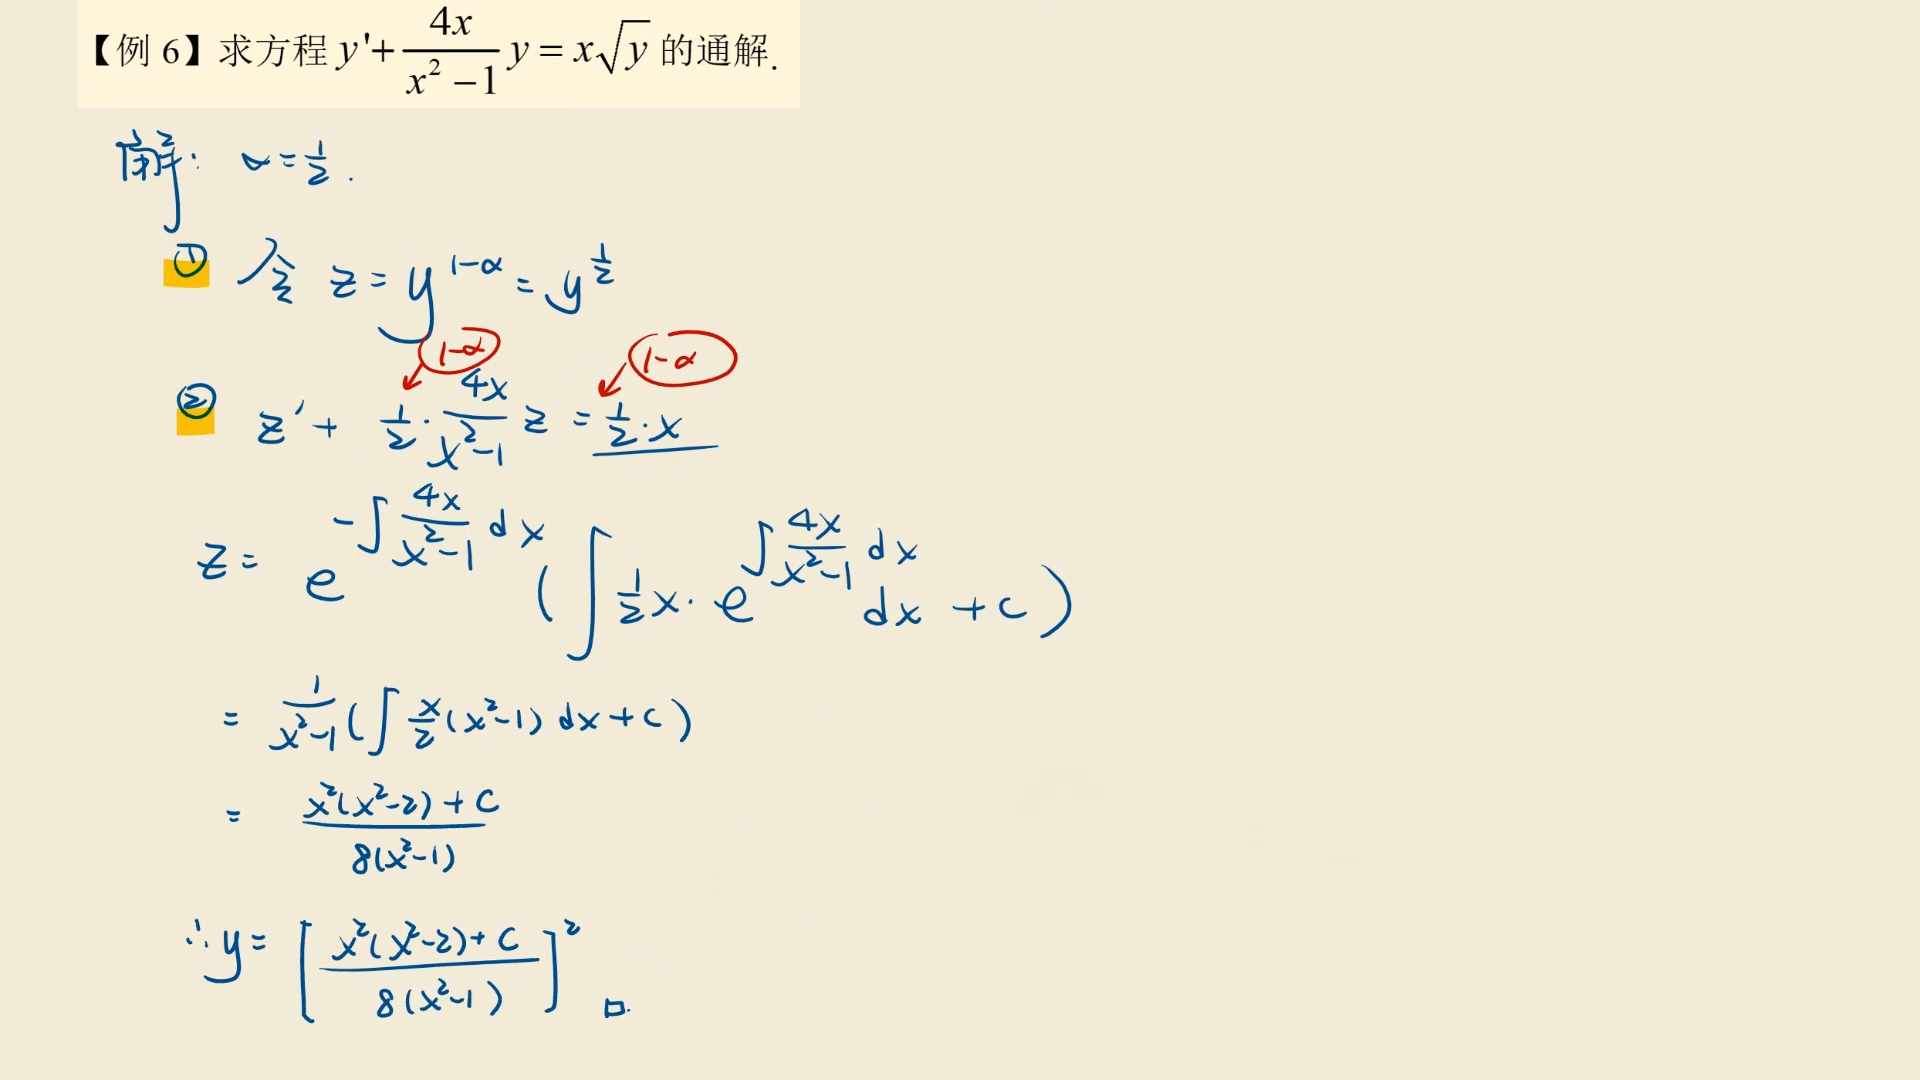 【例 6】求方程 y'+ \frac{4x}{x^2-1} y = x\sqrt{y} 的通解.
解: α = \frac{1}{2}.
① 令 z = y^{1-α} = y^{\frac{1}{2}}
1-α 1-α
② z' + \frac{1}{2}·\frac{4x}{x^2-1} z = \frac{1}{2}·x
z = e^{-∫\frac{4x}{x^2-1}dx} (∫\frac{1}{2}x·e^{∫\frac{4x}{x^2-1}dx} dx + c)
= \frac{1}{x^2-1}(∫\frac{x}{2}(x^2-1)dx+c)
= \frac{x^2(x^2-2)+C}{8(x^2-1)}
∴ y = [\frac{x^2(x^2-2)+C}{8(x^2-1)}]^2 □.